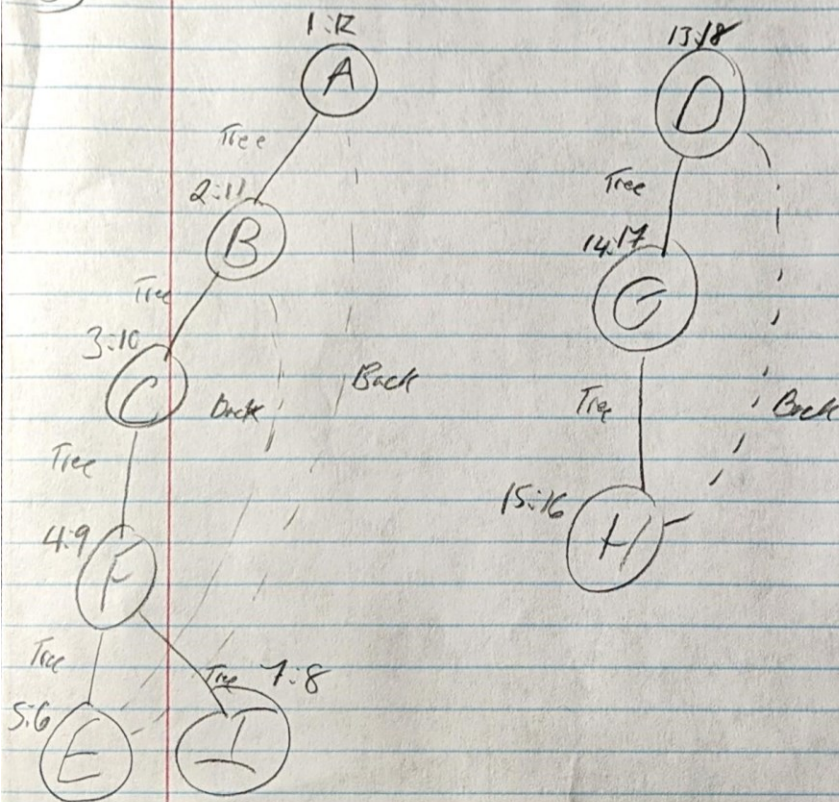 1:12
A
Tree
2:11
B
Tree
3:10
C
Back
Back
Tree
4:9
F
Tree
Tree
7:8
5:6
E
I
13:18
D
Tree
14:17
G
Tree
Back
15:16
H